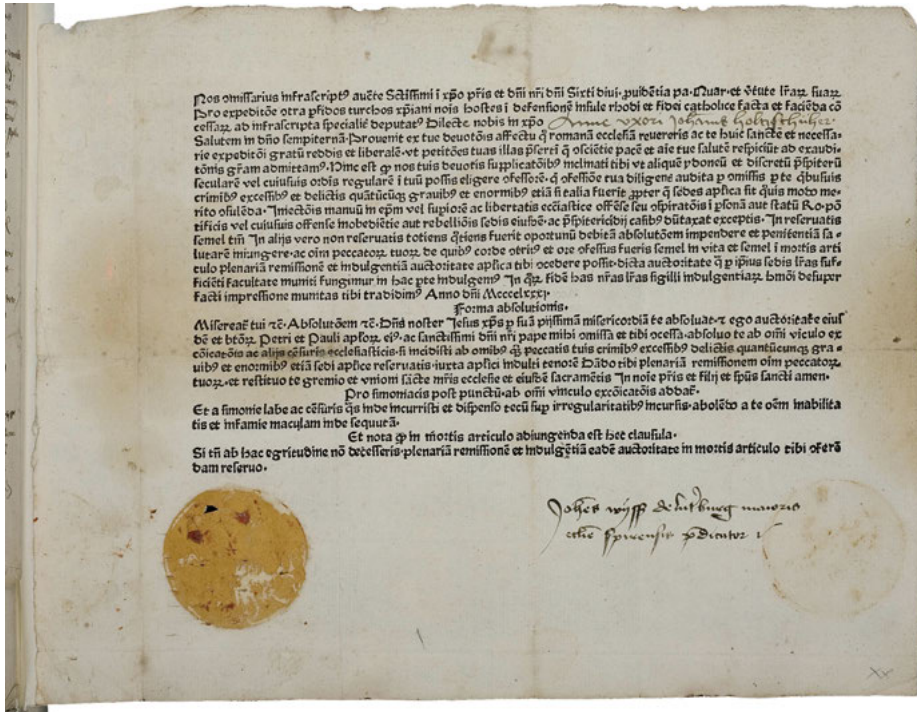 Nos omissarius infrascriptꝰ aucte Sctissimi i xpo pris et dni nri dni Sixti diui. puidentia pa. Quar. et vtute lraꝝ suaꝝ
Pro expeditoe otra pfidos turchos xpiani nois hostes i defensione insule rhodi et fidei catholice facta et facieda co
cessaꝝ ad infrascripta specialie deputatꝰ Dilecte nobis in xpo Anne vxori Johanis holtzschuher
Salutem in dno sempiternā. Prouenit ex tue deuotōis affectu ꝙ romanā ecclesiā reuereris ac te huic sancte et necessa⸗
rie expeditōi gratū reddis et liberalē. vt petitōes tuas illas pserti q osciētie pacē et aie tue salutē respiciūt ad exaudi⸗
tōnis gram admittamꝰ. Hinc est ꝙ nos tuis deuotis supplicatōibꝰ inclinati tibi vt aliquē ydoneū et discretū pspiterū
secularē vel cuiusuis ordis regularē i tuū possis eligere ofessorē. q ofessiōe tua diligenē audita p omissis p te qbusuis
crimibꝰ excessibꝰ et delictis quātūcūqꝫ grauibꝰ et enormibꝰ etiā si talia fuerit ꝓpter q sedes aplica sit quis moto me⸗
rito osulēda. Iniectōis manuū in epm vel supiorē ac libertatis ecclastice offēse seu ospiratōis i psonā aut statū Ro. pō
tificis vel cuiusuis offense inobediētie aut rebelliōis sedis eiusdē. ac pspitericidij casibꝰ dūtaxat exceptis. In reseruatis
semel tm̄ In alijs vero non reseruatis totiens qtiens fuerit oportunū debitā absolutōem impendere et penitentiā sa⸗
lutarē iniungere. ac oim peccatoꝝ tuoꝝ de quibꝰ corde otritꝰ et ore ofessus fueris semel in vita et semel i mortis arti
culo plenariā remissionē et indulgentiā auctoritate aplica tibi ocedere possit. dicta auctoritate q p ipiꝰ sedis lras suf⸗
ficiēti facultate muniti fungimur in hac pte indulgemꝰ In qꝝ fidē has nras lras sigilli indulgentiaꝝ hmōi desuper
facti impressione munitas tibi tradidimꝰ Anno dni Mcccclxxxi.
Forma absolutionis.
Misereat̄ tui ⁊c̄. Absolutōem ⁊c̄. Dns noster Iesus xps p suā pijssimā misericordiā te absoluat. ⁊ ego auctoritate eiusˢ
dē et btōꝝ Petri et Pauli aplorꝝ eiꝰ. ac sanctissimi dni nri pape mihi omissa et tibi ocessa. absoluo te ab omi viculo ex
cōicatōis ac alijs cēsuris ecclesiasticis. si incidisti ab omibꝰ qꝫ peccatis tuis crimibꝰ excessibꝰ delictis quantūcunqꝫ gra⸗
uibꝰ et enormibꝰ etiā sedi aplice reseruatis. iuxta aplici indulti tenorē Dādo tibi plenariā remissionem oim peccatoꝝ
tuoꝝ. et restituo te gremio et vnioni sācte mris ecclesie et eiusdē sacramētis In noie pris et filij et spūs sancti amen.
Pro simoniacis post punctū. ab omi vinculo excōicatōis addat̄.
Et a simonie labe ac cēsuris qs inde incurristi et dispenso tecū sup irregularitatibꝰ incursis. abolēdo a te oēm inabilita
tis et infamie maculam inde sequutā.
Et nota ꝙ in mortis articulo adiungenda est hec clausula.
Si tn̄ ab hac egritudine nō decesseris. plenariā remissionē et indulgētiā eadē auctoritate in mortis articulo tibi oferē
dam reseruo.
Johes wijss de
maioris
eccīe spirensis pdicator
xx